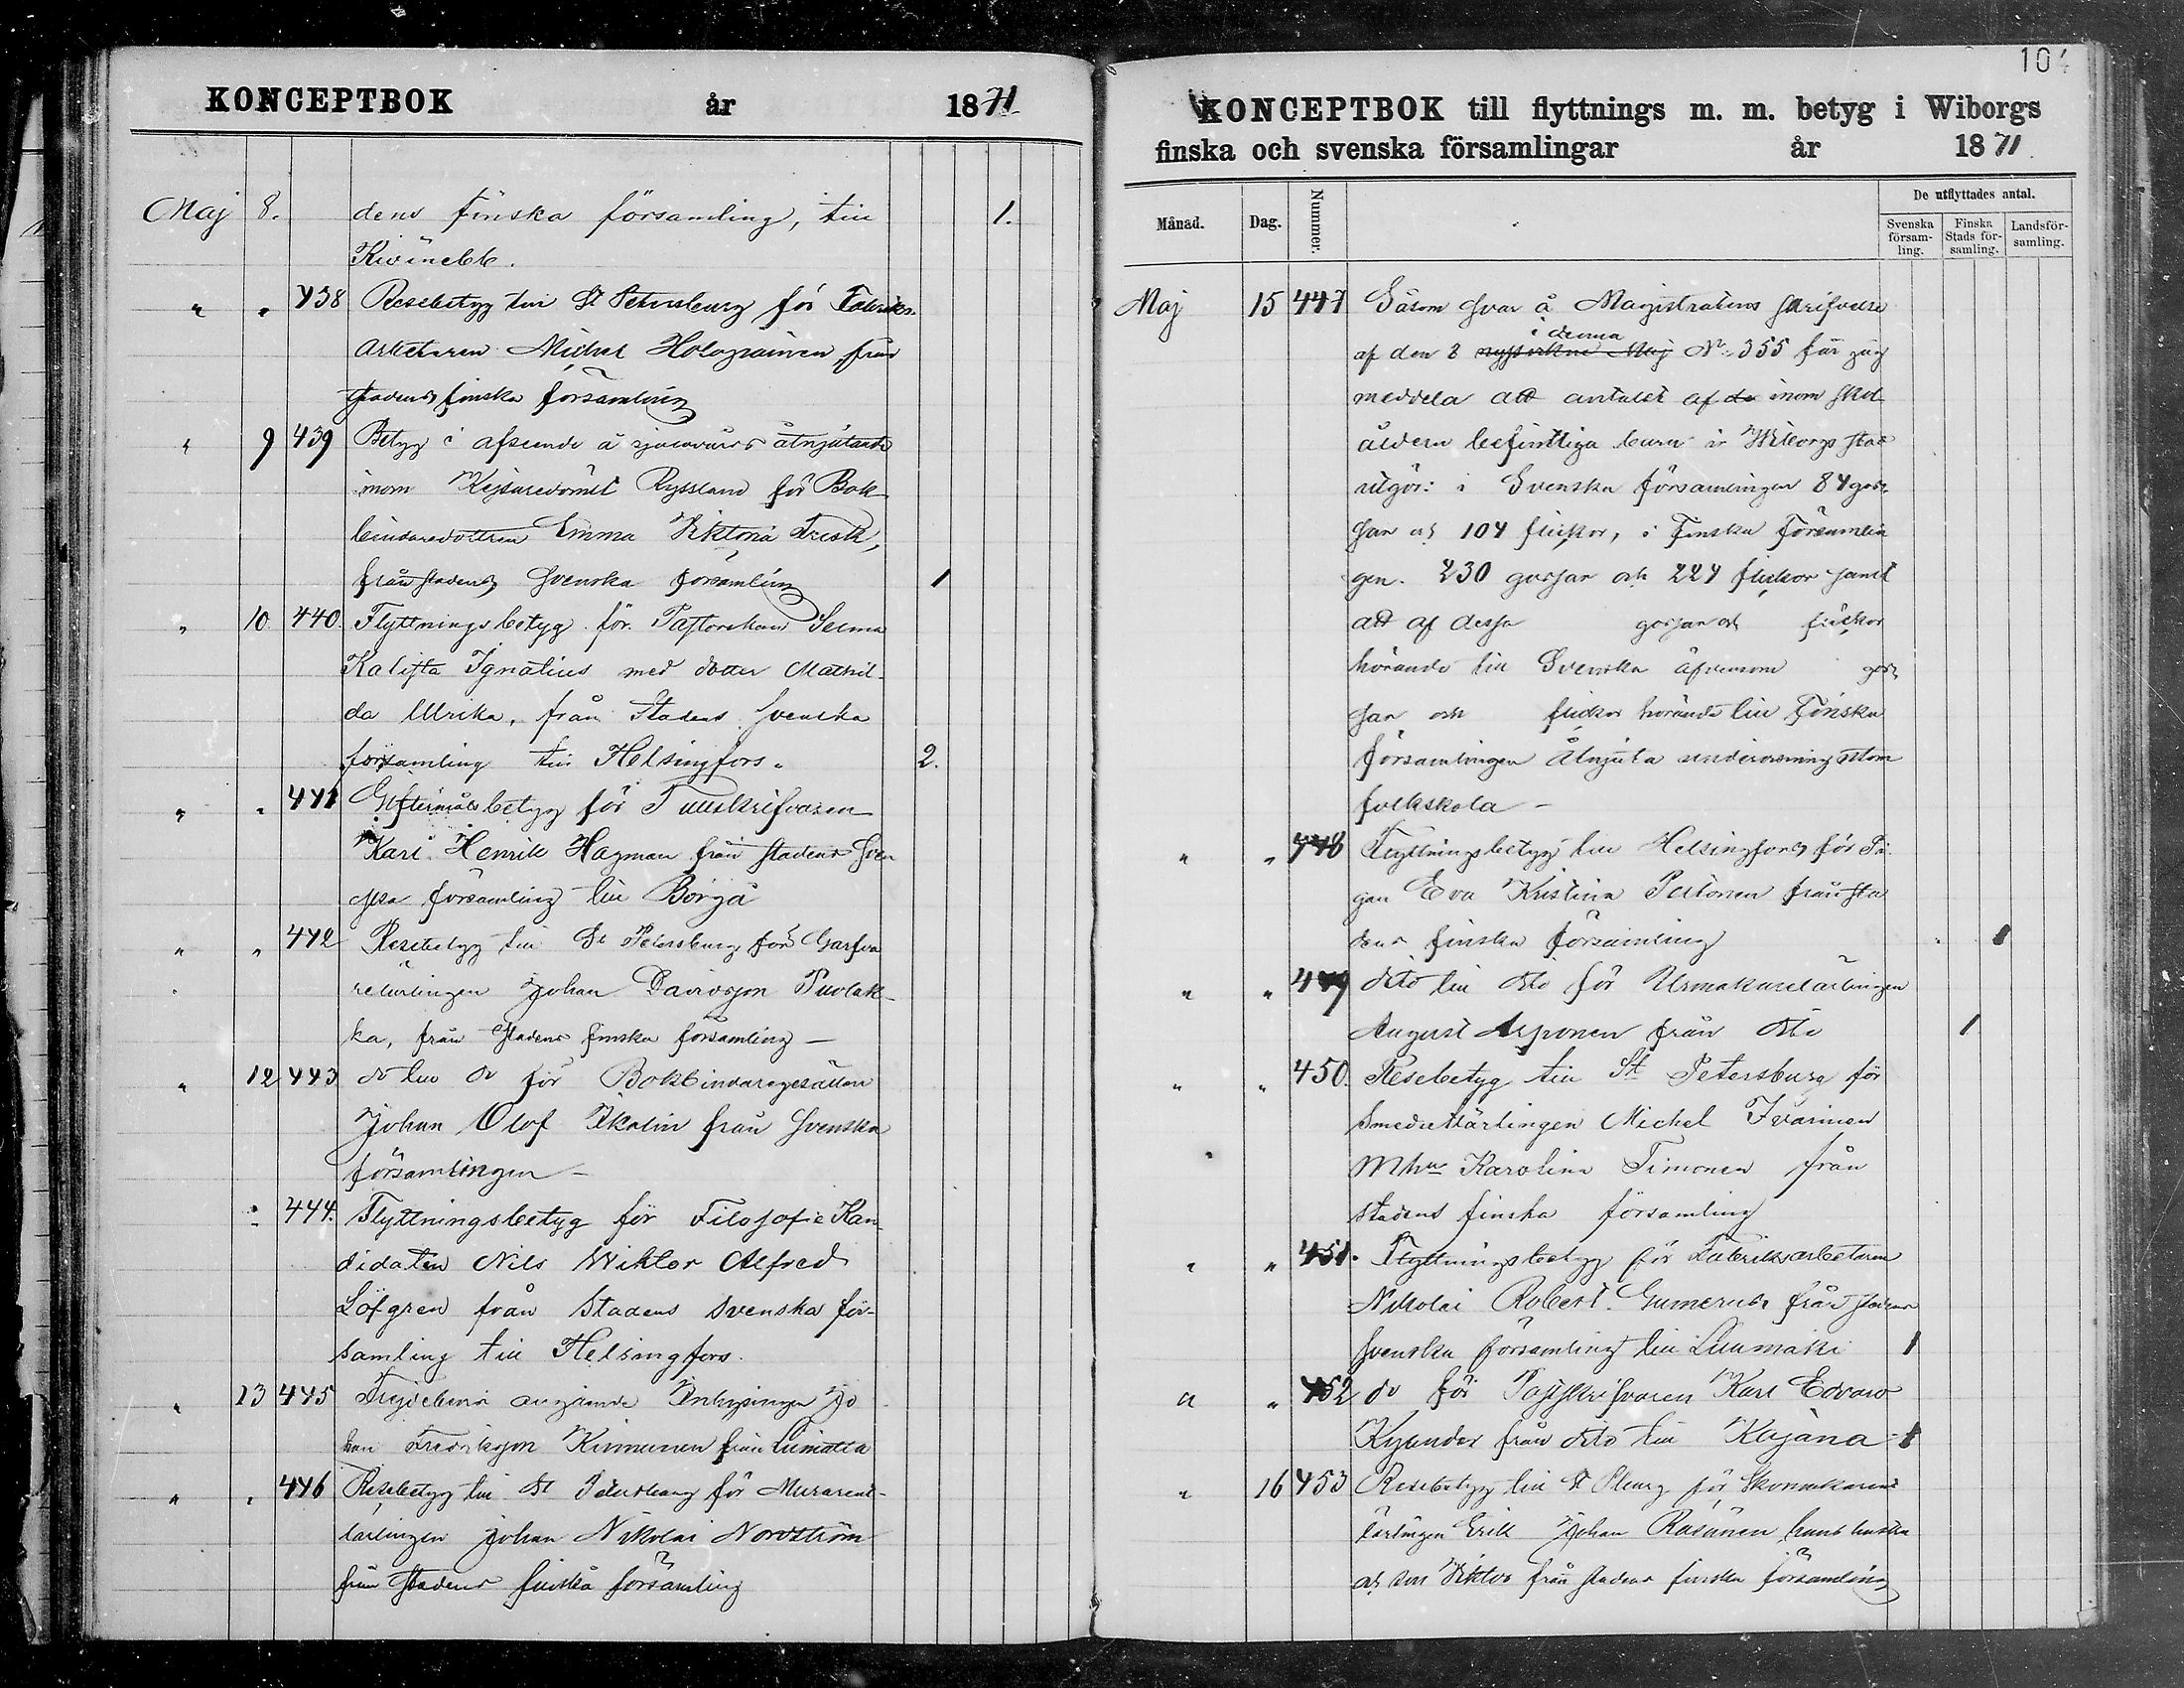 KONCEPTBOK år 1871
Maj 8. dens finska församling, till 1.
Kivinebb.
" " 438 Resebetyg till St Petersburg för Fabriks-
arbetaren Michel Holopainen från
stadens finska församling
" 9 439 Betyg i afseende å åtnjutande
inom Kejsaredömet Ryssland för Bok-
bindaredottren Emma Viktoria Frisk,
från stadens Svenska församling 1
" 10. 440. Flyttningsbetyg för Pastorskan Selma
Kalista Ignatius med dotter Mathil-
da Ulrika, från Stadens Svenska
församling till Helsingfors. 2.
" " 441 Giftermålsbetyg för Tullskrifvaren
Karl Henrik Hagman från stadens Sven
ska församling till Borgå
" " 442 Resebetyg till St Petersburg för Garfva
relärlingen Johan Davidsson Puolak-
ka, från stadens finska församling —
" 12 443 do till do för Bokbindaregesällen
Johan Olof Ikalin från Svenska
församlingen —
" 444. Flyttningsbetyg för Filosofie Kan-
didaten Nils Wiktor Alfred
Löfgren från Stadens Svenska för-
samling till Helsingfors.
" 13 445 Frejdebevis angående Jo
han Fredriksson Kinnunen från Limatta
" " 446 Resebetyg till St Petersburg för Murare-
lärlingen Johan Nikolai Nordström
från stadens finska församling
104
KONCEPTBOK till flyttnings m. m. betyg i Wiborgs
finska och svenska församlingar år 1871.
Månad. Dag. Nummer. De utflyttades antal.
Svenska försam-ling. Finska Stads för-samling. Landsför-samling.
Maj 15 447 Såsom svar å Magistratens skrifvelse
i denna
af den 8 Maj No 355 får jag
meddela att antalet af de inom skol
åldern befintliga barn i Wiborgs stad
utgör: i Svenska församlingen 84 gos-
sar och 104 flickor, i Finska Församlin
gen. 230 gossar och 224 flickor samt
att af dessa gossar och flickor
hörande till Svenska äfvensom gos-
sar och flickor hörande till Finska
församlingen åtnjuta undervisning utom
folkskola —
" " 448 Flyttningsbetyg till Helsingfors för Pi-
gan Eva Kristina Peltonen från sta
dens finska församling 1
" " 449 dito till dito för Urmakarelärlingen
August Asponen från dito 1
" " 450. Resebetyg till St Petersburg för
Smedslärlingen Michel Ivarinen
" Mhu Karolina Timonen från
stadens finska församling
" " 451. Flyttningsbetyg för Fabriksarbetaren
Nikolai Robert Gumerus från stadens
svenska församling till Luumäki 1
" " 452 do för Postskrifvaren Karl Edvard
Kyander från dito till Kajana 1
" 16 453 Resebetyg till St Pburg för Skomakare
lärlingen Erik Johan Räsänen, hans hustru
och son Viktor från stadens finska församling